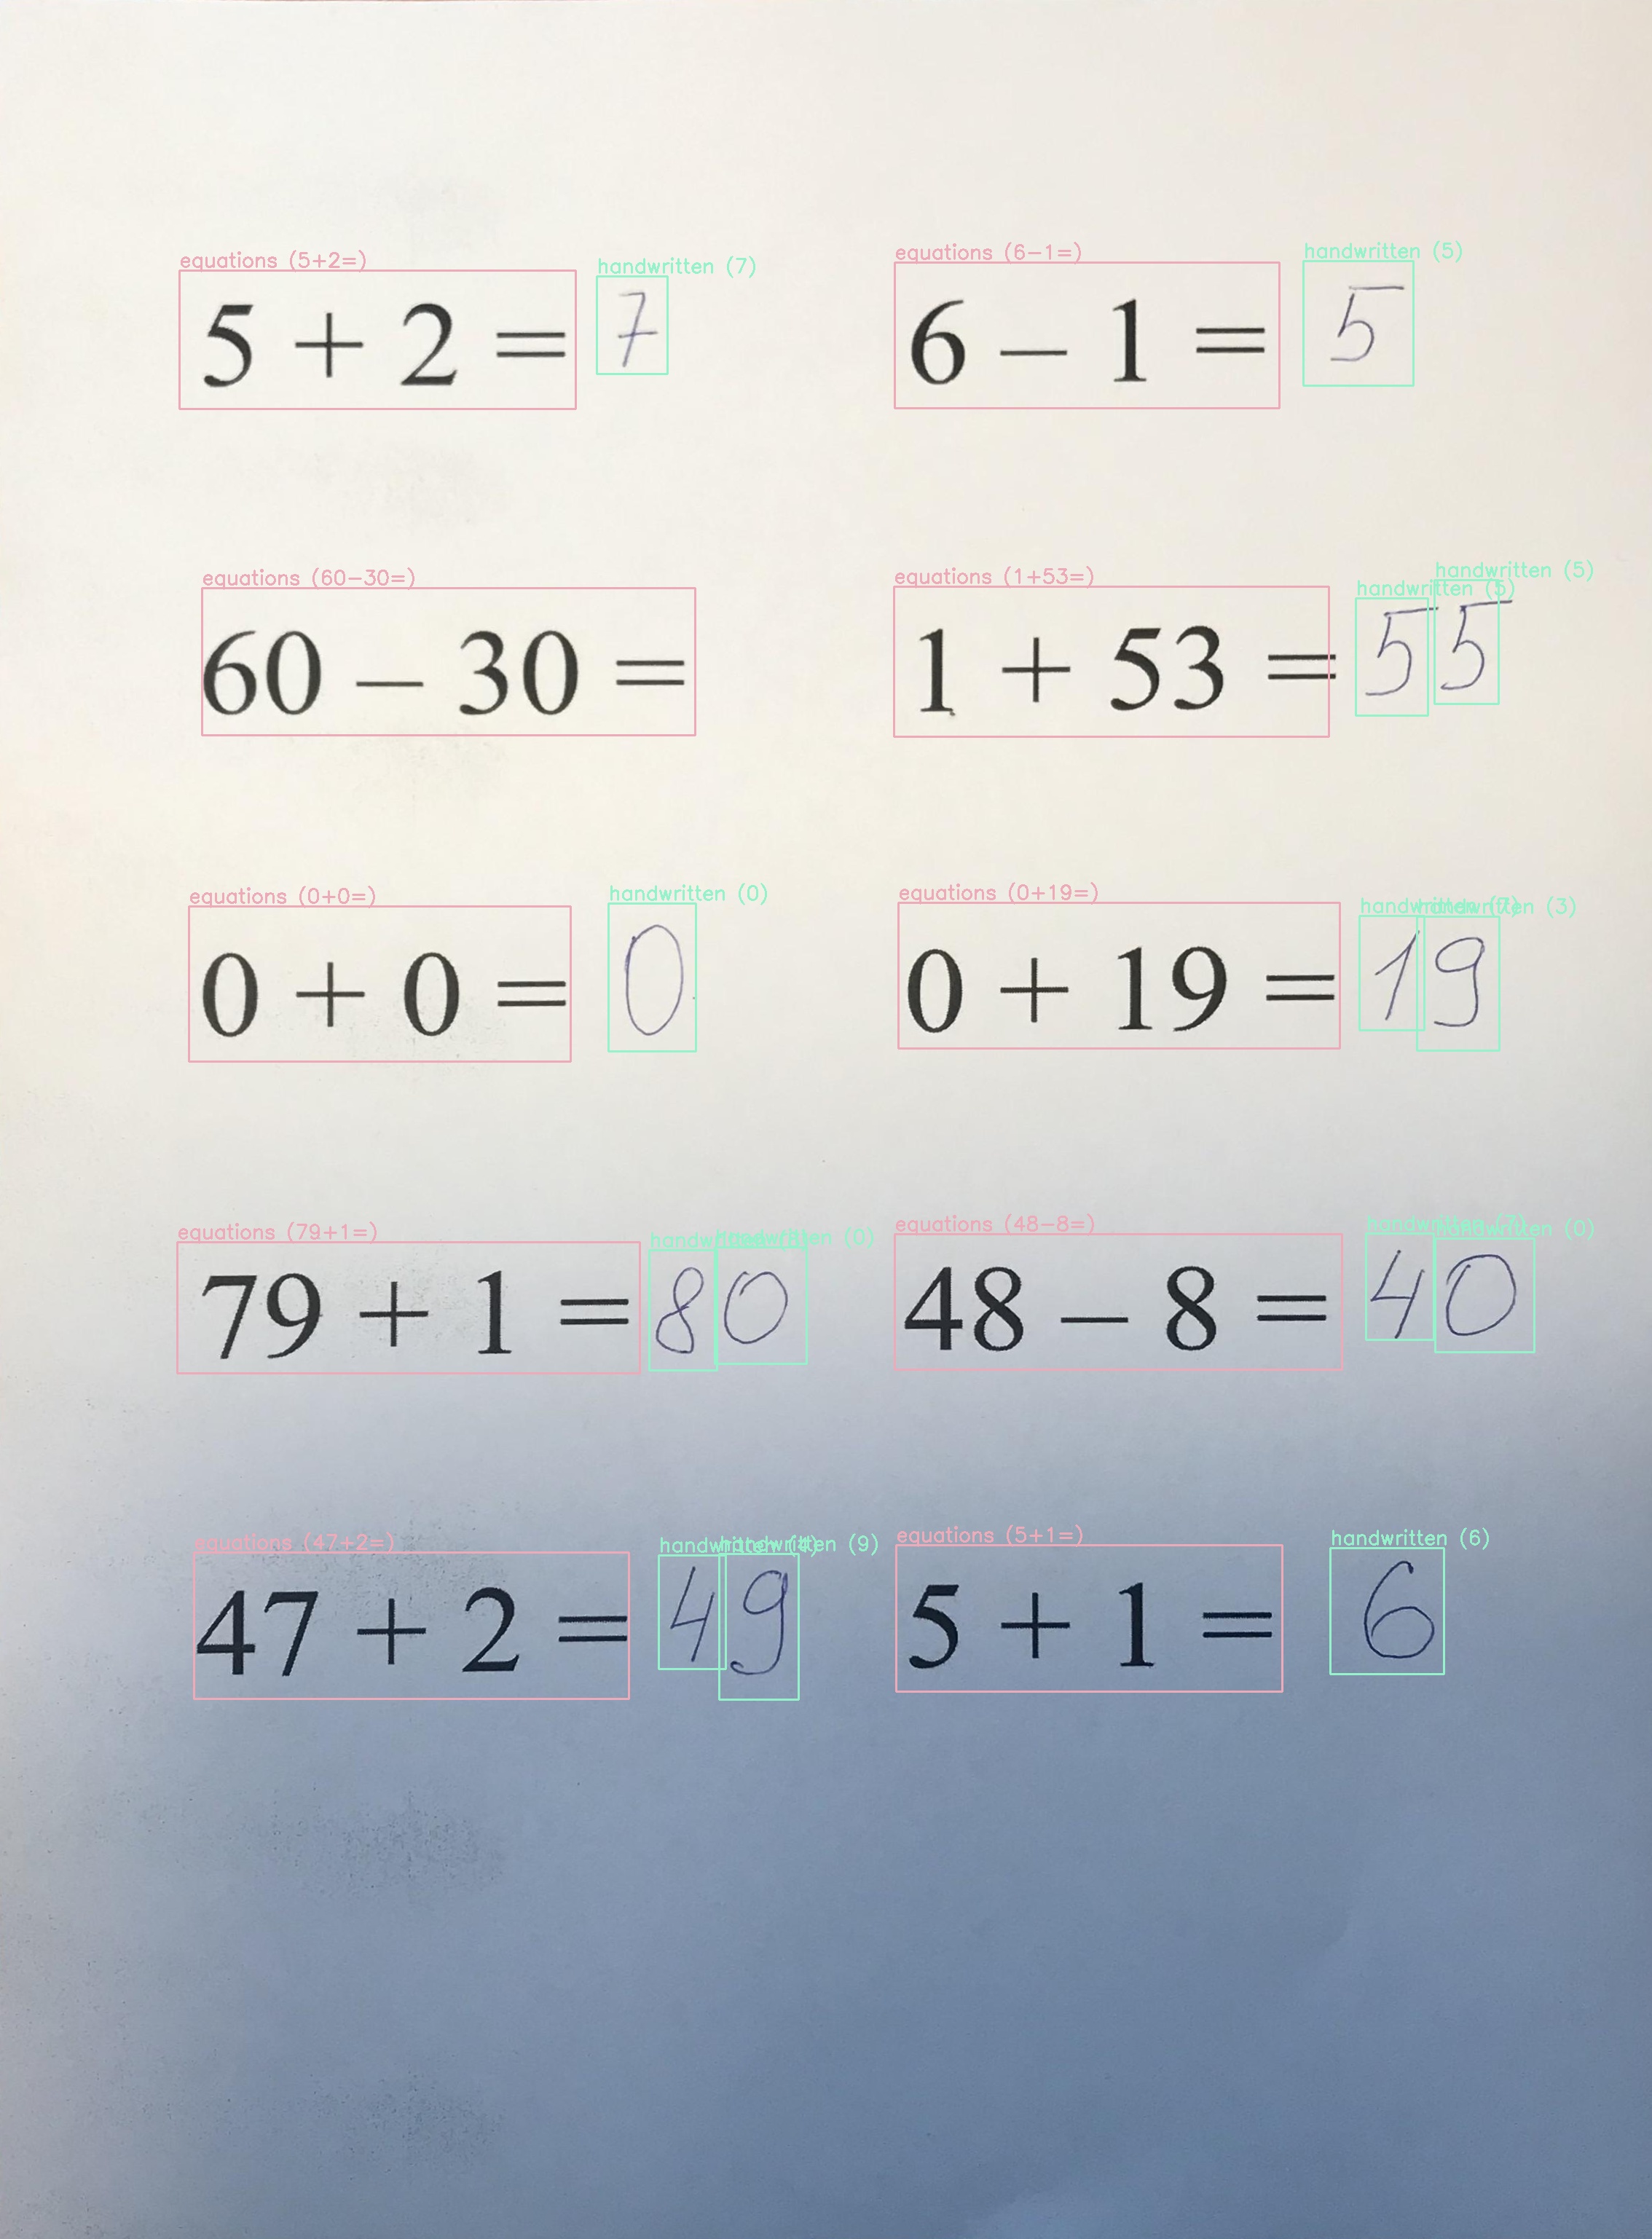 equations (5+2=) handwritten (7) equations (6-1=) handwritten (5)
5 + 2 = 7 6 – 1 = 5
equations (60-30=) equations (1+53=) handwritten (5) handwritten (5)
60 – 30 = 1 + 53 = 55
equations (0+0=) handwritten (0) equations (0+19=) handwritten (7) handwritten (3)
0 + 0 = 0 0 + 19 = 19
equations (79+1=) handwritten handwritten (0) equations (48-8=) handwritten (7) handwritten (0)
79 + 1 = 80 48 – 8 = 40
equations (47+2=) handwritten (4) handwritten (9) equations (5+1=) handwritten (6)
47 + 2 = 49 5 + 1 = 6